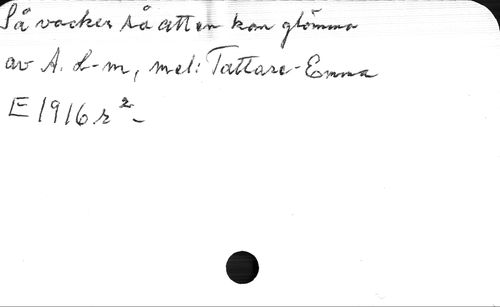 Så vacker så att en kan glömma
av A. L-m, mel: Tattare-Emma
E 1916 r 2 -